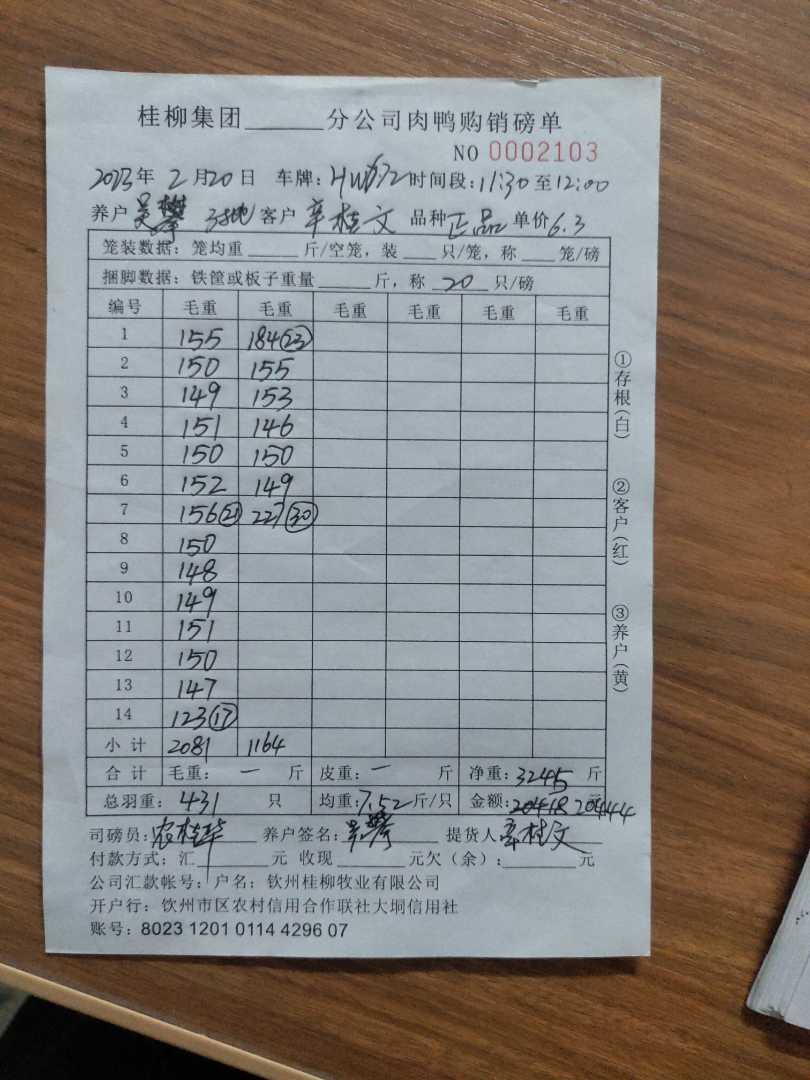 桂柳集团______分公司肉鸭购销磅单
NO 0002103
2023年 2月20日 车牌: 时间段:11:30至12:00
养户 吴攀 客户 辛桂文 品种 正品 单价6.3
笼装数据: 笼均重 _____ 斤/空笼, 装 ___ 只/笼, 称 ___ 笼/磅
捆脚数据: 铁筐或板子重量 _____ 斤, 称 20 只/磅
编号 毛重 毛重 毛重 毛重 毛重 毛重
1 155 184(23)
2 150 155
3 149 153
4 151 146
5 150 150
6 152 149
7 156(21) 227(30)
8 150
9 148
10 149
11 151
12 150
13 147
14 123(17)
小计 2081 1164
合计 毛重: 一 斤 皮重: 一 斤 净重: 3245 斤
总羽重: 431 只 均重: 7.52 斤/只 金额: 20418 20444 元
司磅员: 农桂华 养户签名: 吴攀 提货人 辛桂文
付款方式: 汇______元 收现______元欠(余):______元
公司汇款帐号: 户名: 钦州桂柳牧业有限公司
开户行: 钦州市区农村信用合作联社大垌信用社
账号: 8023 1201 0114 4296 07
①存根(白)
②客户(红)
③养户(黄)